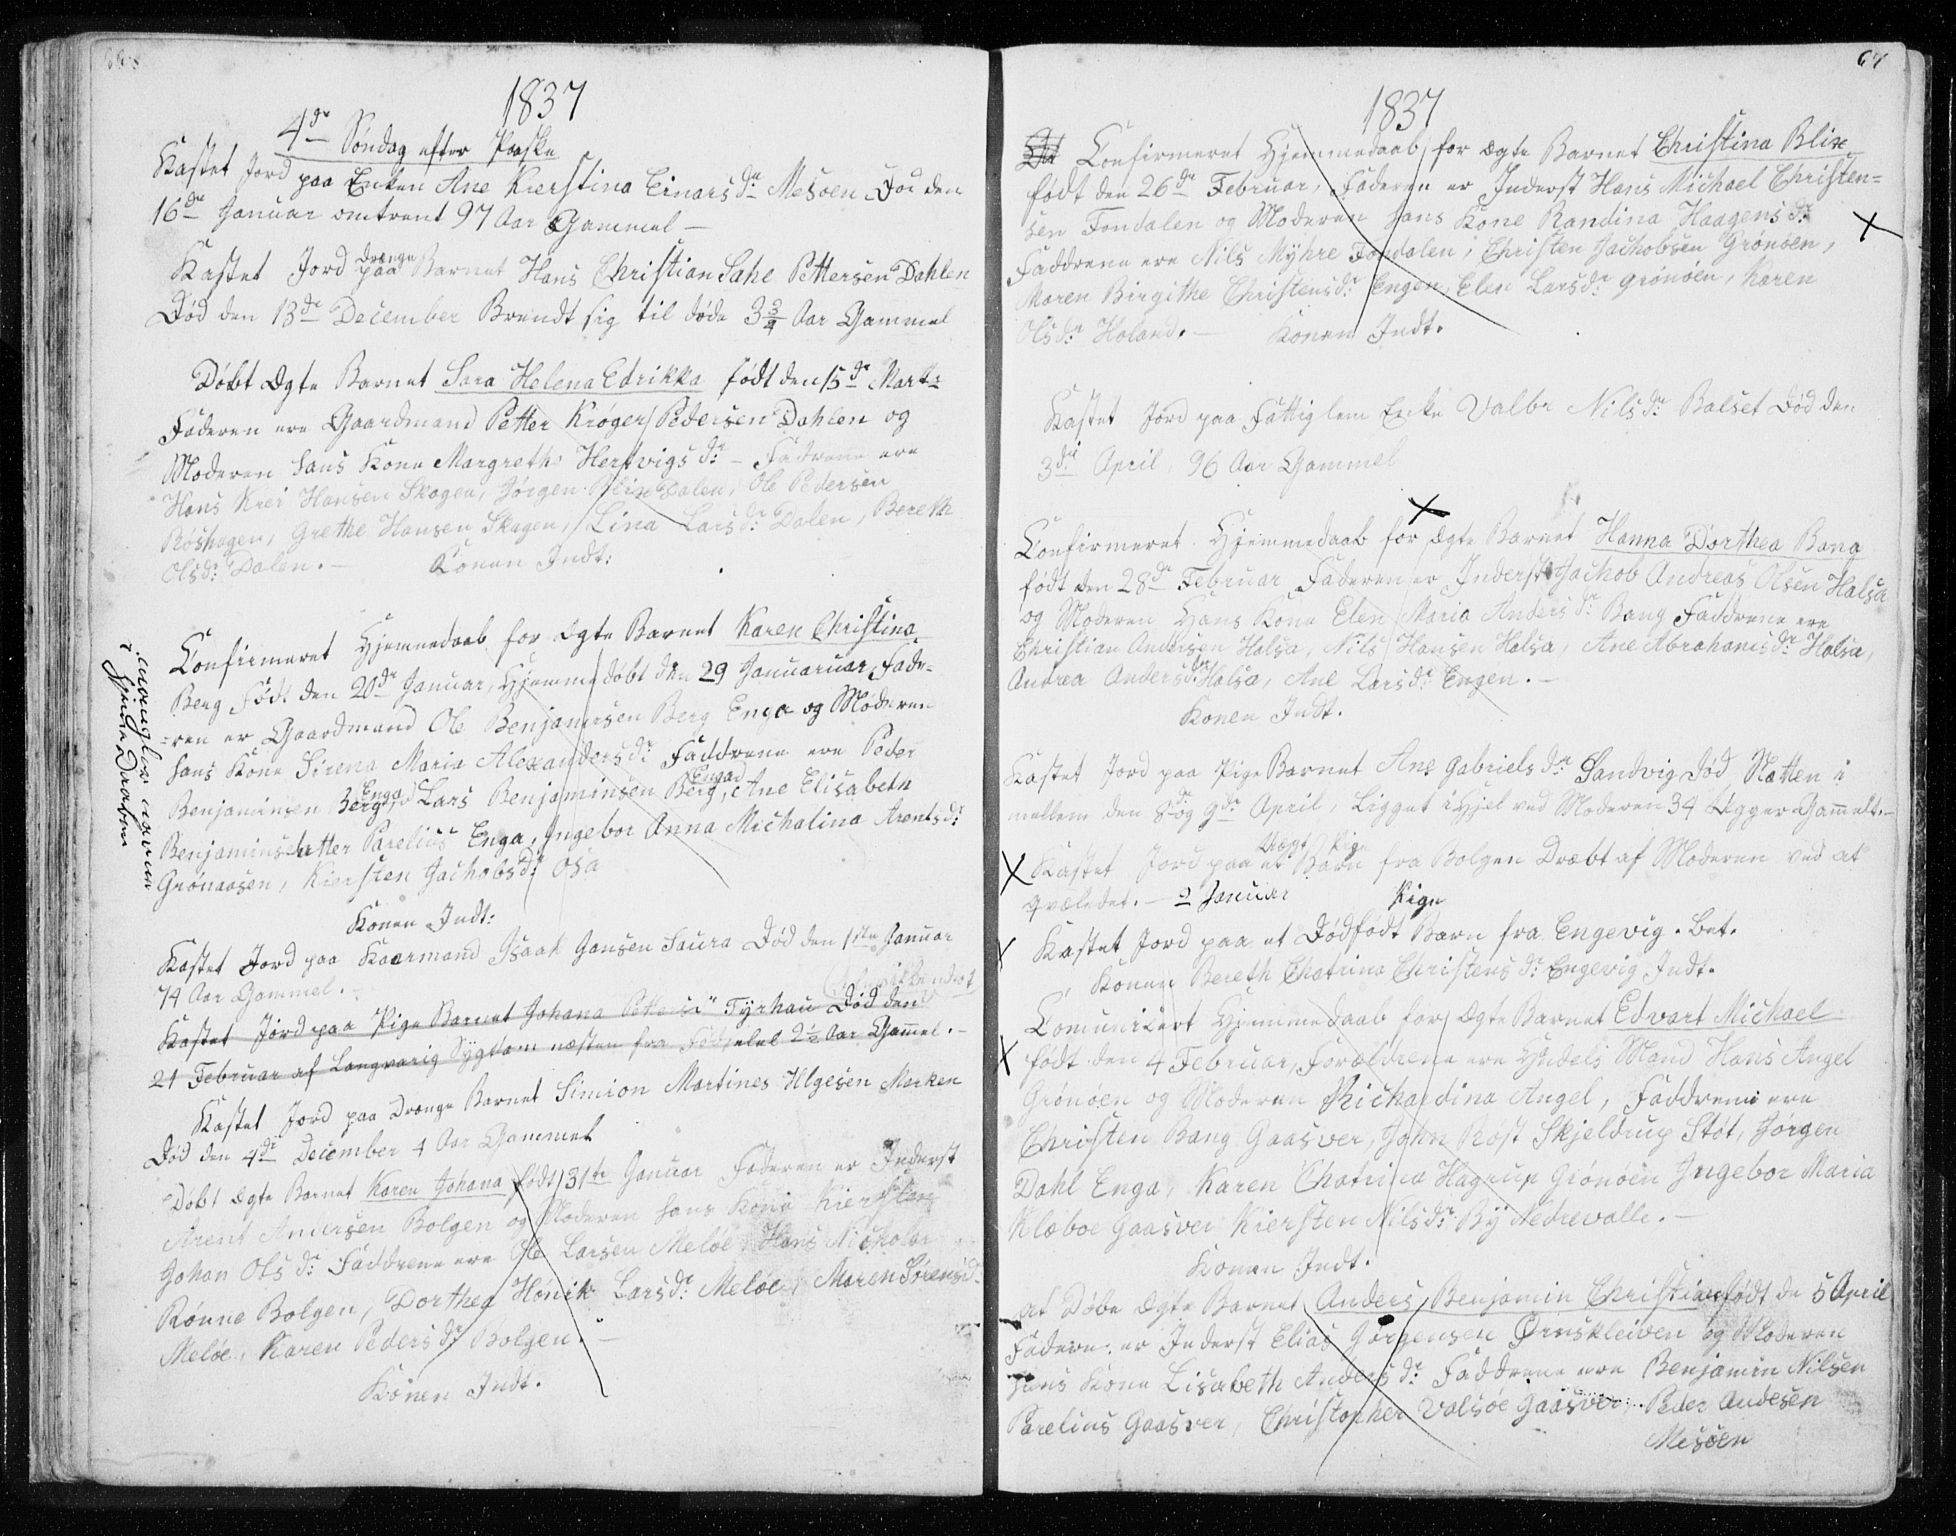 1837
4de Søndag efter Paaske
Kastet Jord paa Enken Ane Kierstina Einarsdr Mesøen Død den
16de Januar omtrent 97 Aar Gammel –
Kastet Jord paa Drenge Barnet Hans Christian Sahl Pettersen Dahlen
Død den 13de December Brendt sig til døde 3 3/4 Aar Gammel
Døbt Ægte Barnet Sara Helena Edrikka født den 15de Marts
Faderen ere Gaardmand Petter Krøger Pedersen Dahlen og
Moderen hans Kone Margrethe Hertvigsdr – Fadrene ere
Hans Krei Hansen Skagen, Jørgen Blix Dalen, Ole Pedersen
Røshagen, Grethe Hansen Skagen, Lina Larsdr Dalen, Bereth
Olsdr Dalen. – Konen Indt:
Confirmeret Hjemmedaab for Ægte Barnet Karen Christina
Berg Født den 20de Januar, Hjemmedøbt den 29 Januaruar, Fade-
=ren er Gaardmand Ole Benjaminsen Berg Enga og Moderen
hans Kone Sirena Maria Alexandersdr Faddrene ere Peder
Benjaminsen Berg Enga, Lars Benjaminsen Berg Enga, Ane Elisabeth
Benjaminsdatter Parelius Enga, Ingebor Anna Michalina Arentsdr
Grønaasen, Kiersten Jachobsdr Osa
Konen Indt:
mangler navnene
i hjemme Daaben
Kastet Jord paa Kaarmand Isaak Jansen Saura Død den 1ste Januar
74 Aar Gammel. –
Kastet Jord paa Pige Barnet Johana Tyrhau Død den
21 Februar af Langvarig Sygdom næsten fra Fødselel 2 1/2 Aar Gammel. –
Kastet Jord paa Drenge Barnet Simion Martines Ulgesen Marken
Død den 4de December 4 Aar Gammel
Døbt Ægte Barnet Karen Johana født 31te Januar Faderen er Inderst
Arent Andersen Bolgen og Moderen hans Kone Kiersten
Johan Olsdr Faddrene ere Ole Larsen Meløe, Hans Nicholai
Rønne Bolgen, Dorthea Hønik Larsdr Meløe, Maren Sørensdr
Meløe, Karen Pedersdr Bolgen. –
Konen Indt.
67
1837
Confirmeret Hjemmedaab for Ægte Barnet Christina Blix
født den 26de Februar, Faderen er Inderst Hans Michael Christen=
sen Fondalen og Moderen hans Kone Randina Haagensdr
Faddrene ere Nils Myhre Fondalen, Christen Jachobsen Grønøen,
Maren Birgithe Christensdr Engen, Elen Larsdr Grønøen, Karen
Olsdr Holand. – Konen Indt.
Kastet Jord paa Fattiglem Enke Valbr Nilsdr Balset Død den
3die April, 96 Aar Gammel
Confirmeret Hjemmedaab for Ægte Barnet Hanna Dorthea Bang
født den 28de Februar Faderen er Inderst Jachob Andreas Olsen Halsa
og Moderen Hans Kone Elen Maria Andersdr Bang Faddrene ere
Christian Andersen Halsa, Nils Hansen Halsa, Ane Abrahamsdr Halsa,
Andrea Andersdr Halsa, Ane Larsdr Engen. –
Konen Indt.
Kastet Jord paa Pige Barnet Ane Gabrielsdr Sandvig Død Natten i
mellem den 8de og 9de April, Ligget ihjel ved Moderen 34 Uger Gammelt. –
Kastet Jord paa et Uægt Pige Barn fra Bolgen Dræbt af Moderen ved at
qvæledet. – 2 Januar
Kastet Jord paa et Dødfødt Pige Barn fra Engevig. Bet.
Konen Bereth Chatrina Christensdr Engevig Indt.
Comunicert Hjemmedaab for Ægte Barnet Edvart Michael
født den 4 Februar, Forældrene ere Handels Mand Hans Angel
Grønøen og Moderen Richardina Angel, Faddrene ere
Christen Bang Gaasver, John Røst Skjeldrup Støt, Jørgen
Dahl Enga, Karen Chatrina Hagrup Grønøen Ingebor Maria
Klæboe Gaasver Kiersten Nilsdr By Nedrevalle. –
Konen Indt.
at Døbe Ægte Barnet Anders Benjamin Christian født de 5 April
Faderen er Inderst Elias Jørgensen Ørnskleiven og Moderen
hans Kone Lisabeth Andersdr Faddrene ere Benjamin Nilsen
Parelius Gaasver, Christopher Valsøe Gaasver, Peder Andesen
Mesøen